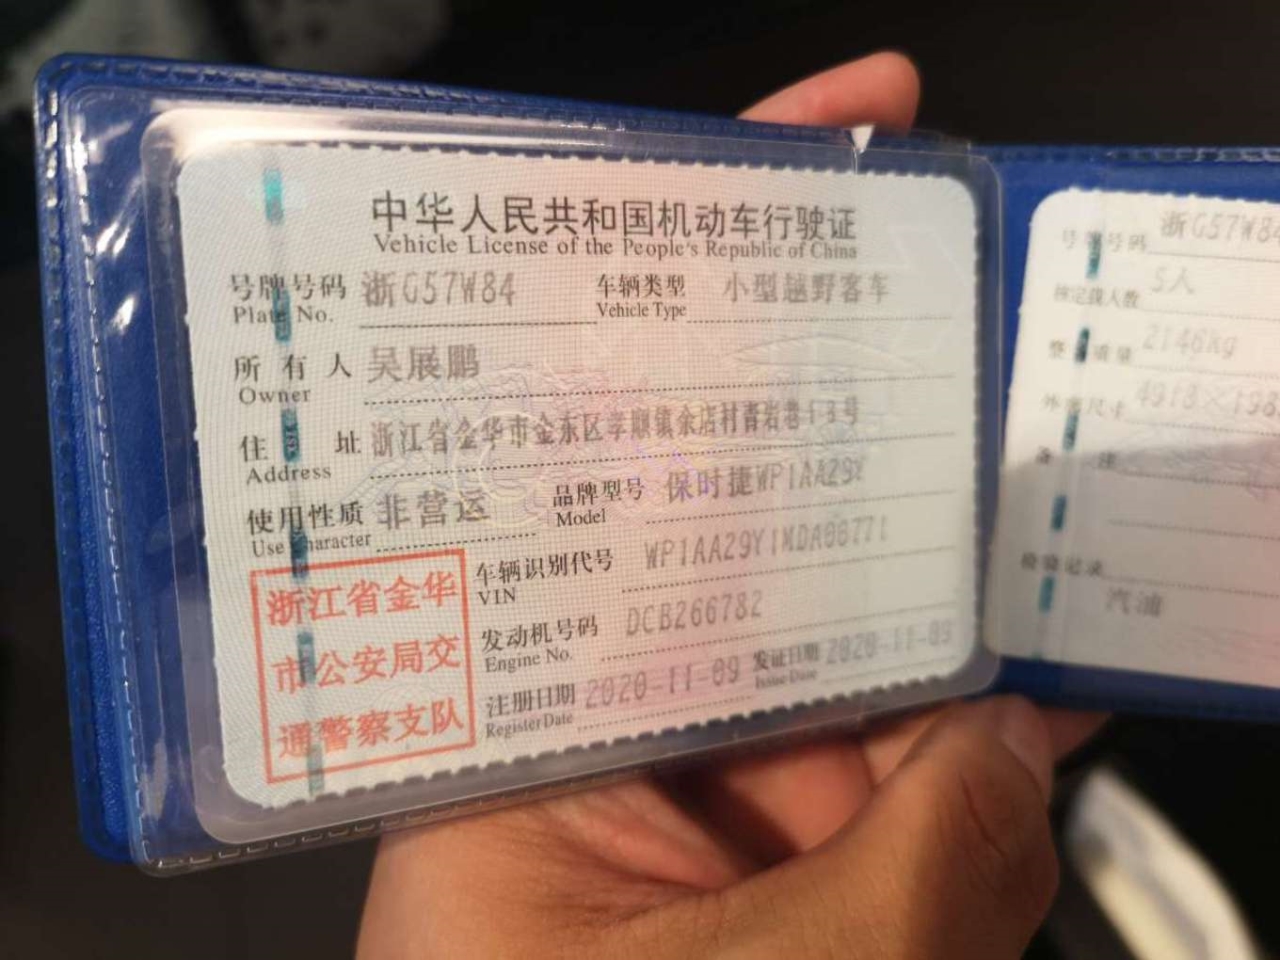 中华人民共和国机动车行驶证
Vehicle License of the People's Republic of China
号牌号码 浙G57W84 车辆类型 小型越野客车
Plate No. Vehicle Type
所有人 吴展鹏
Owner
住址 浙江省金华市金东区孝顺镇余店村青岩巷13号
Address
使用性质 非营运 品牌型号 保时捷WP1AA29Y
Use Character Model
车辆识别代号 WP1AA29Y1MDA08771
VIN
发动机号码 DCB266782
Engine No.
注册日期 2020-11-09 发证日期 2020-11-09
Register Date Issue Date
浙江省金华
市公安局交
通警察支队
号牌号码 浙G57W84
核定载人数 5人
整备质量 2146kg
外廓尺寸 4918×198
备注
检验记录
汽油